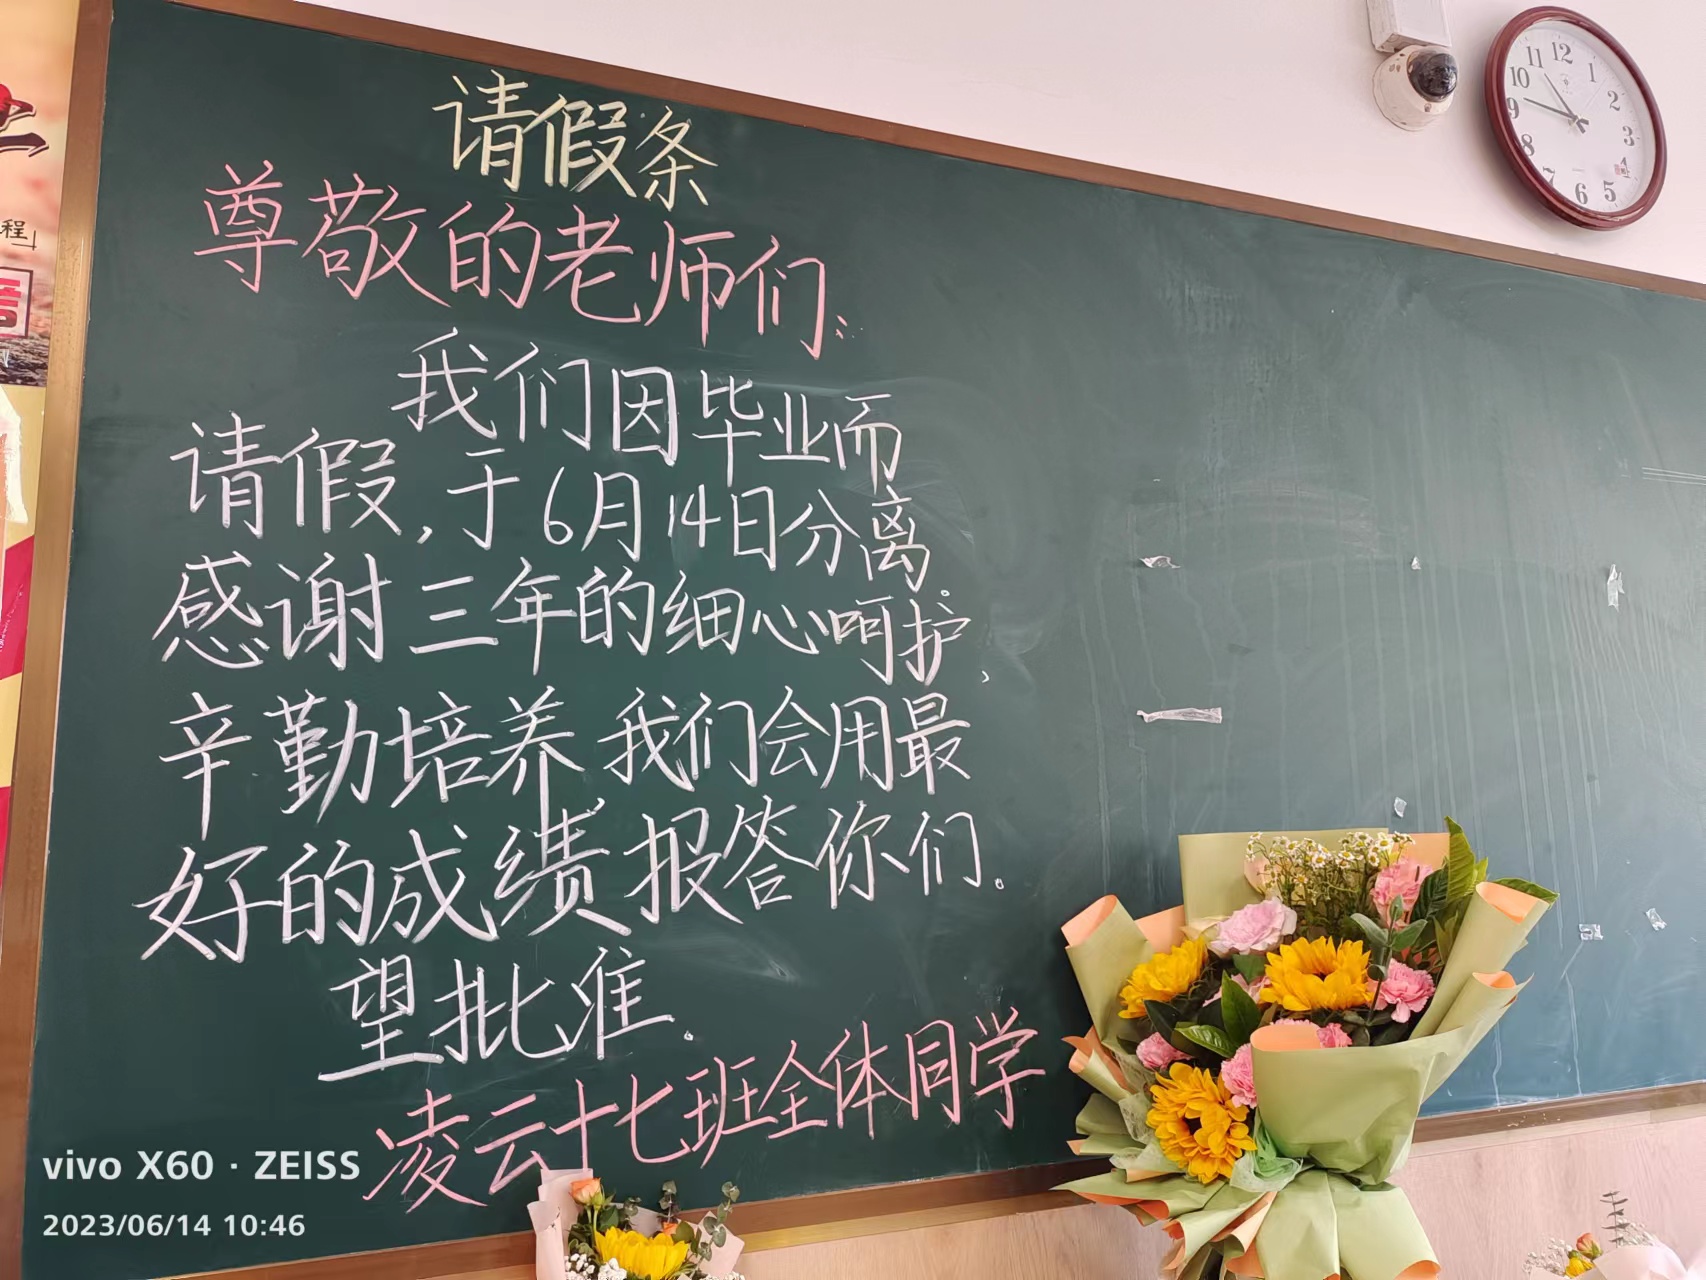 请假条
尊敬的老师们:
我们因毕业而
请假,于6月14日分离。
感谢三年的细心呵护、
辛勤培养,我们会用最
好的成绩报答你们。
望批准。
凌云十七班全体同学
程
12
1
2
3
4
5
6
7
8
9
10
11
vivo X60 · ZEISS
2023/06/14 10:46